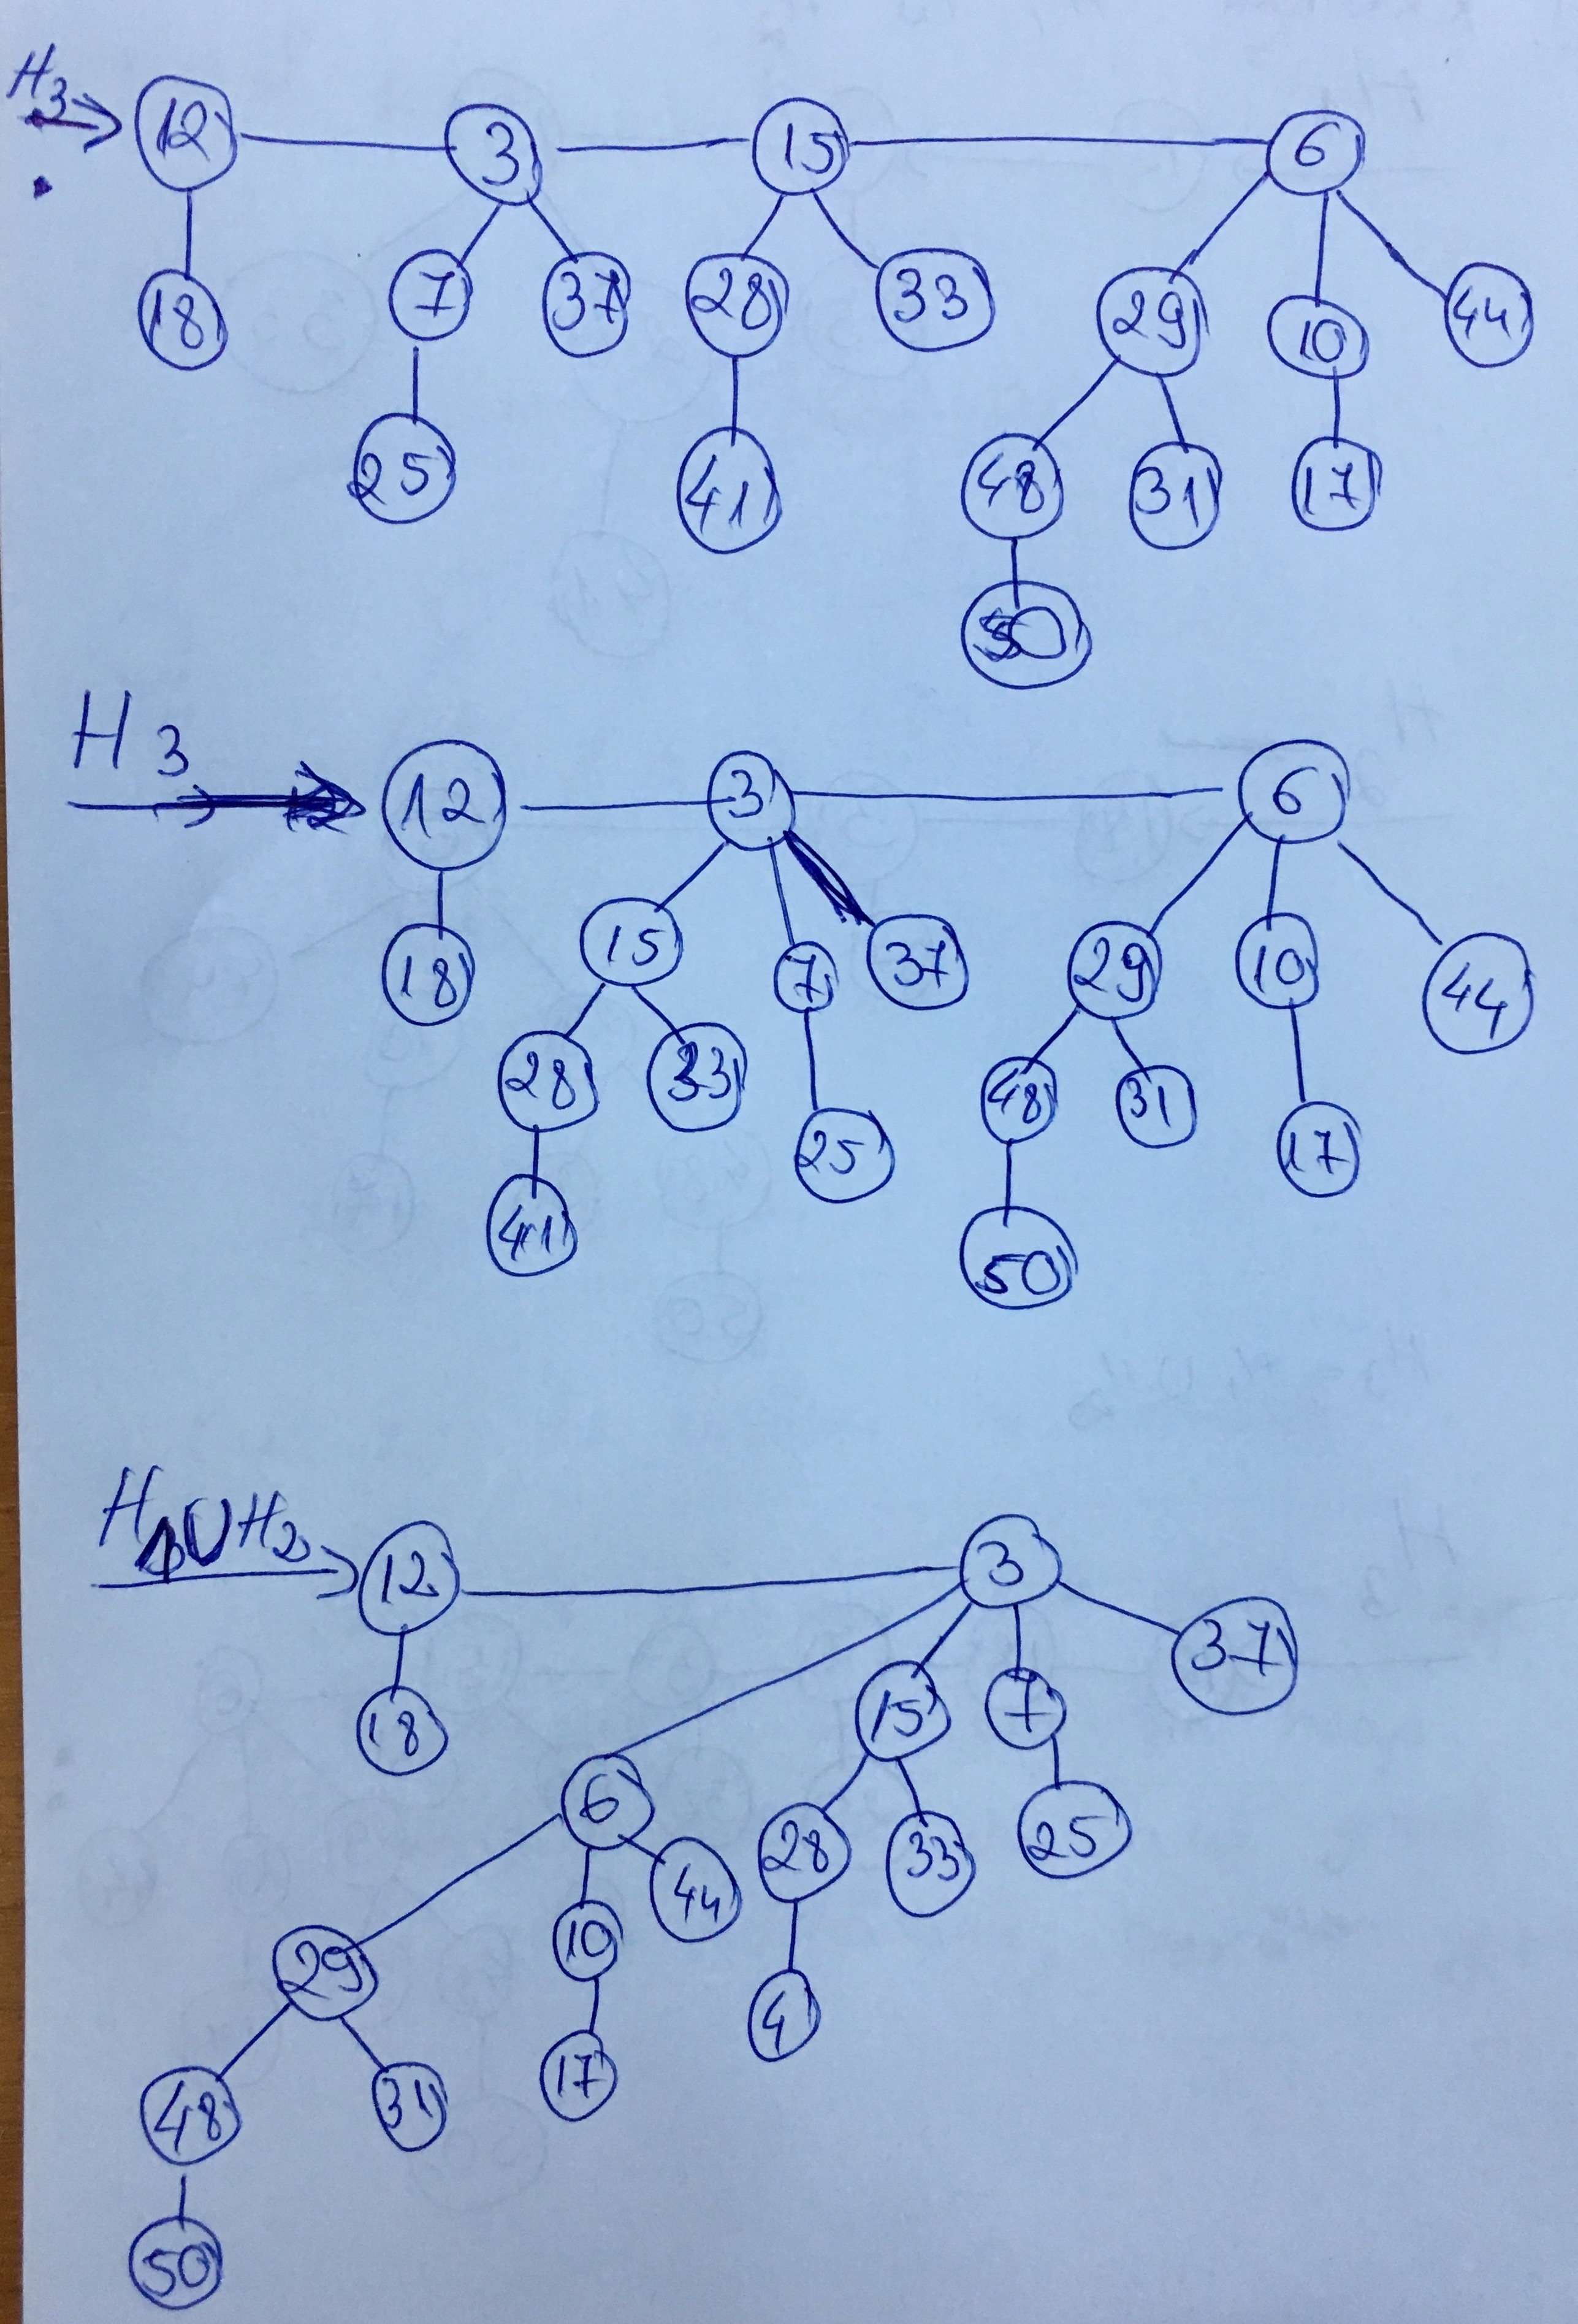 H3
12 3 15 6
18 7 37 28 33 29 10 44
25 41 48 31 17
50
H3
12 3 6
18 15 7 37 29 10 44
28 33 25 48 31 17
41 50
H1UH2
12 3
18 15 7 37
6 28 33 25
29 10 44 4
48 31 17
50